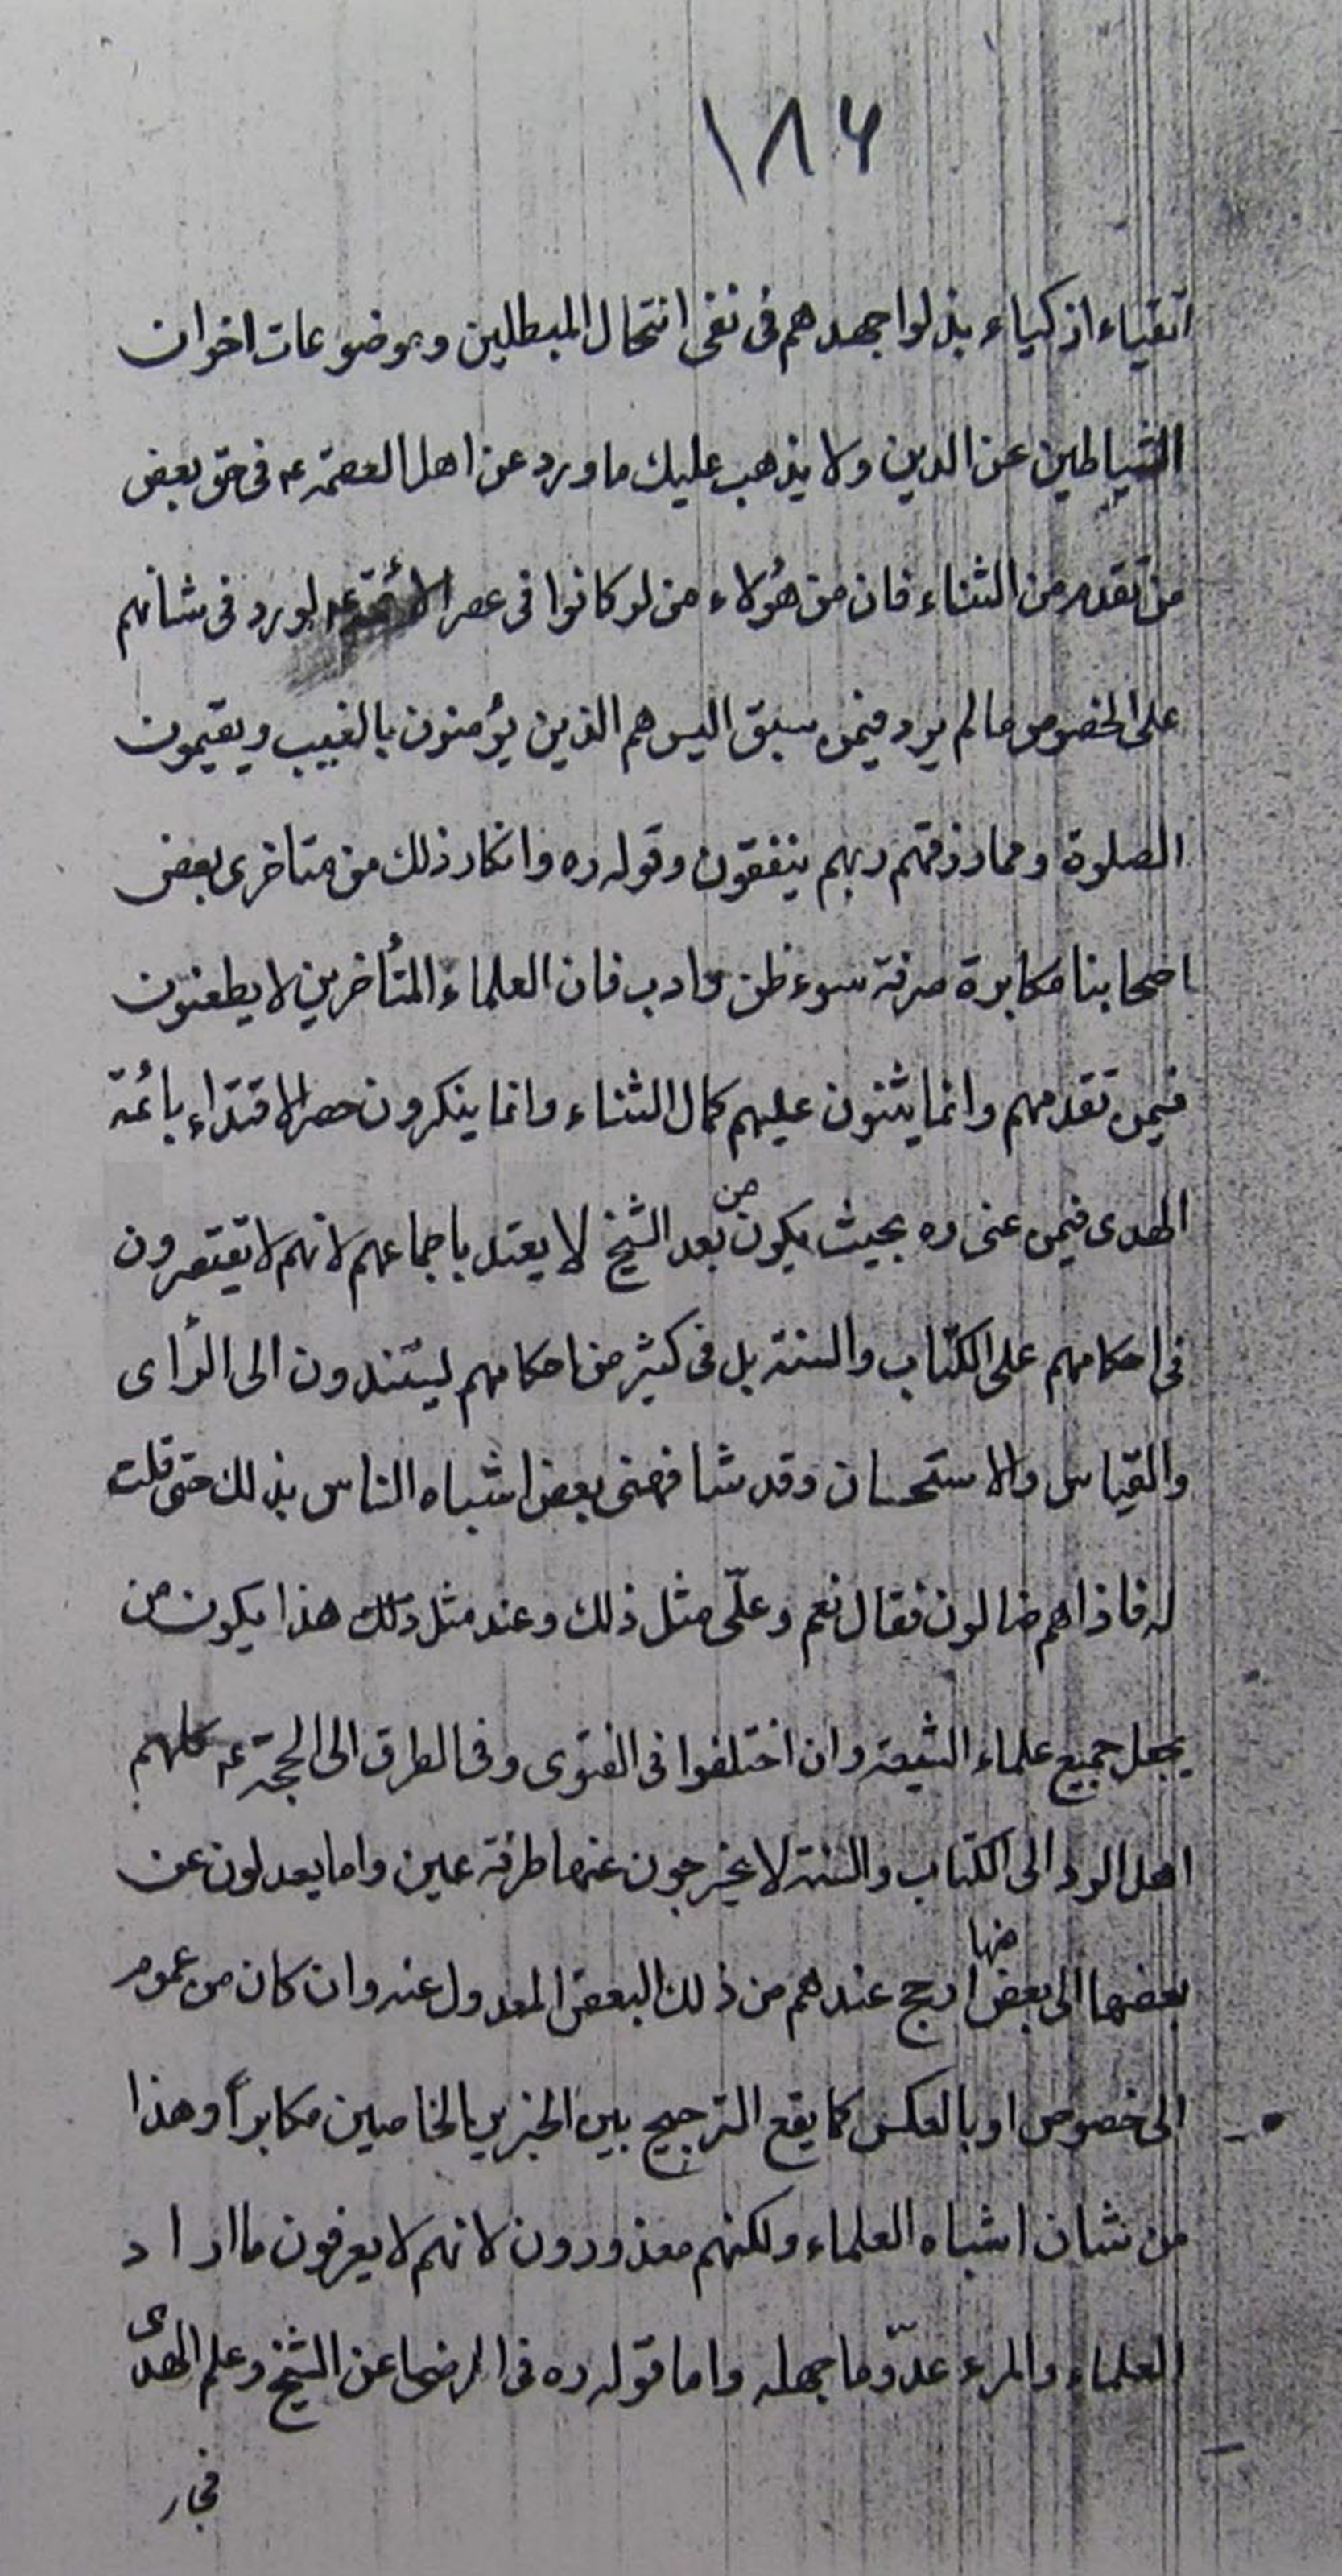 ١٨۶
اتقیاء اذکیاء بذلوا جهدهم فی نفی انتحال المبطلین وموضوعات اخوان
الشیاطین عن الدین ولا یذهب علیك ما ورد عن اهل العصمة ع فی حق بعض
من تقدم من الثناء فان من هؤلاء من لو کانوا فی عصر الائمة ع لورد فی شانهم
علی الخصوص ما لم یرد فیمن سبق الیس هم الذین یؤمنون بالغیب ویقیمون
الصلوة ومما رزقهم ربهم ینفقون وقوله ره وانکار ذلك من متاخری بعض
اصحابنا مکابرة صرفة سوء ظن وادب فان العلماء المتأخرین لا یطعنون
فیمن تقدمهم وانما یثنون علیهم کمال الثناء وانما ینکرون حصر الاقتداء بائمة
الهدی فیمن عنی ره بحیث یکون من بعد الشیخ لا یعتد باجماعهم لانهم لا یقتصرون
فی احکامهم علی الکتاب والسنة بل فی کثیر من احکامهم یستندون الی الرأی
والقیاس والاستحسان وقد شافهنی بعض اشباه الناس بذلك حتی قلت
له فاذا هم ضالون فقال نعم وعلّی مثل ذلك وعند مثل ذلك هذا یکون من
یجعل جمیع علماء الشیعة وان اختلفوا فی الفتوی وفی الطرق الی الحجة ع کلهم
اهل الرد الی الکتاب والسنة لا یخرجون عنها طرفة عین وانما یعدلون عن
بعضها الی بعض منها ارجح عندهم من ذلك البعض المعدول عنه وان کان من عموم
الی خصوص او بالعکس کما یقع الترجیح بین الخبرین الخاصین مکابراً وهذا
من شان اشباه العلماء ولکنهم معذورون لانهم لا یعرفون ما اراد
العلماء والمرء عدّو ما جهله واما قوله ره فی الرضا عن الشیخ وعلم الهدی